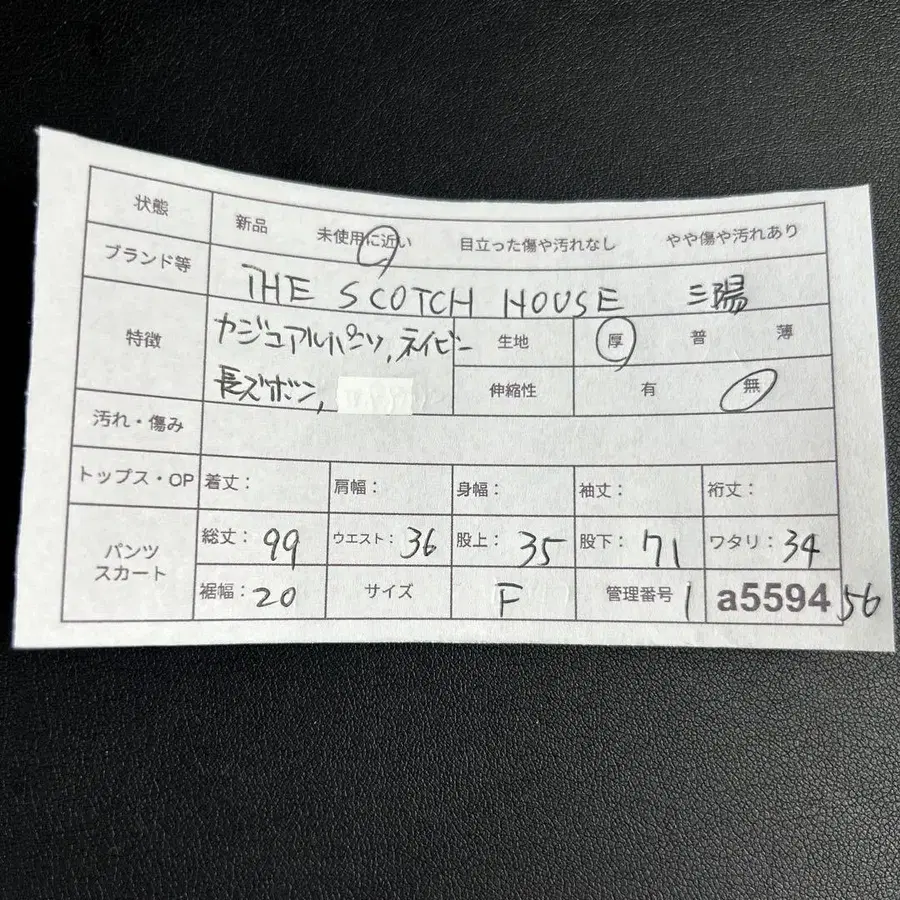 状態 新品 未使用に近い 目立った傷や汚れなし やや傷や汚れあり
ブランド等 THE SCOTCH HOUSE 三陽
特徴 カジュアルパンツ,ネイビー 生地 厚 普 薄
長ズボン, 伸縮性 有 無
汚れ・傷み
トップス・OP 着丈: 肩幅: 身幅: 袖丈: 裄丈:
パンツ スカート 総丈: 99 ウエスト: 36 股上: 35 股下: 71 ワタリ: 34
裾幅: 20 サイズ F 管理番号 1 a5594 56